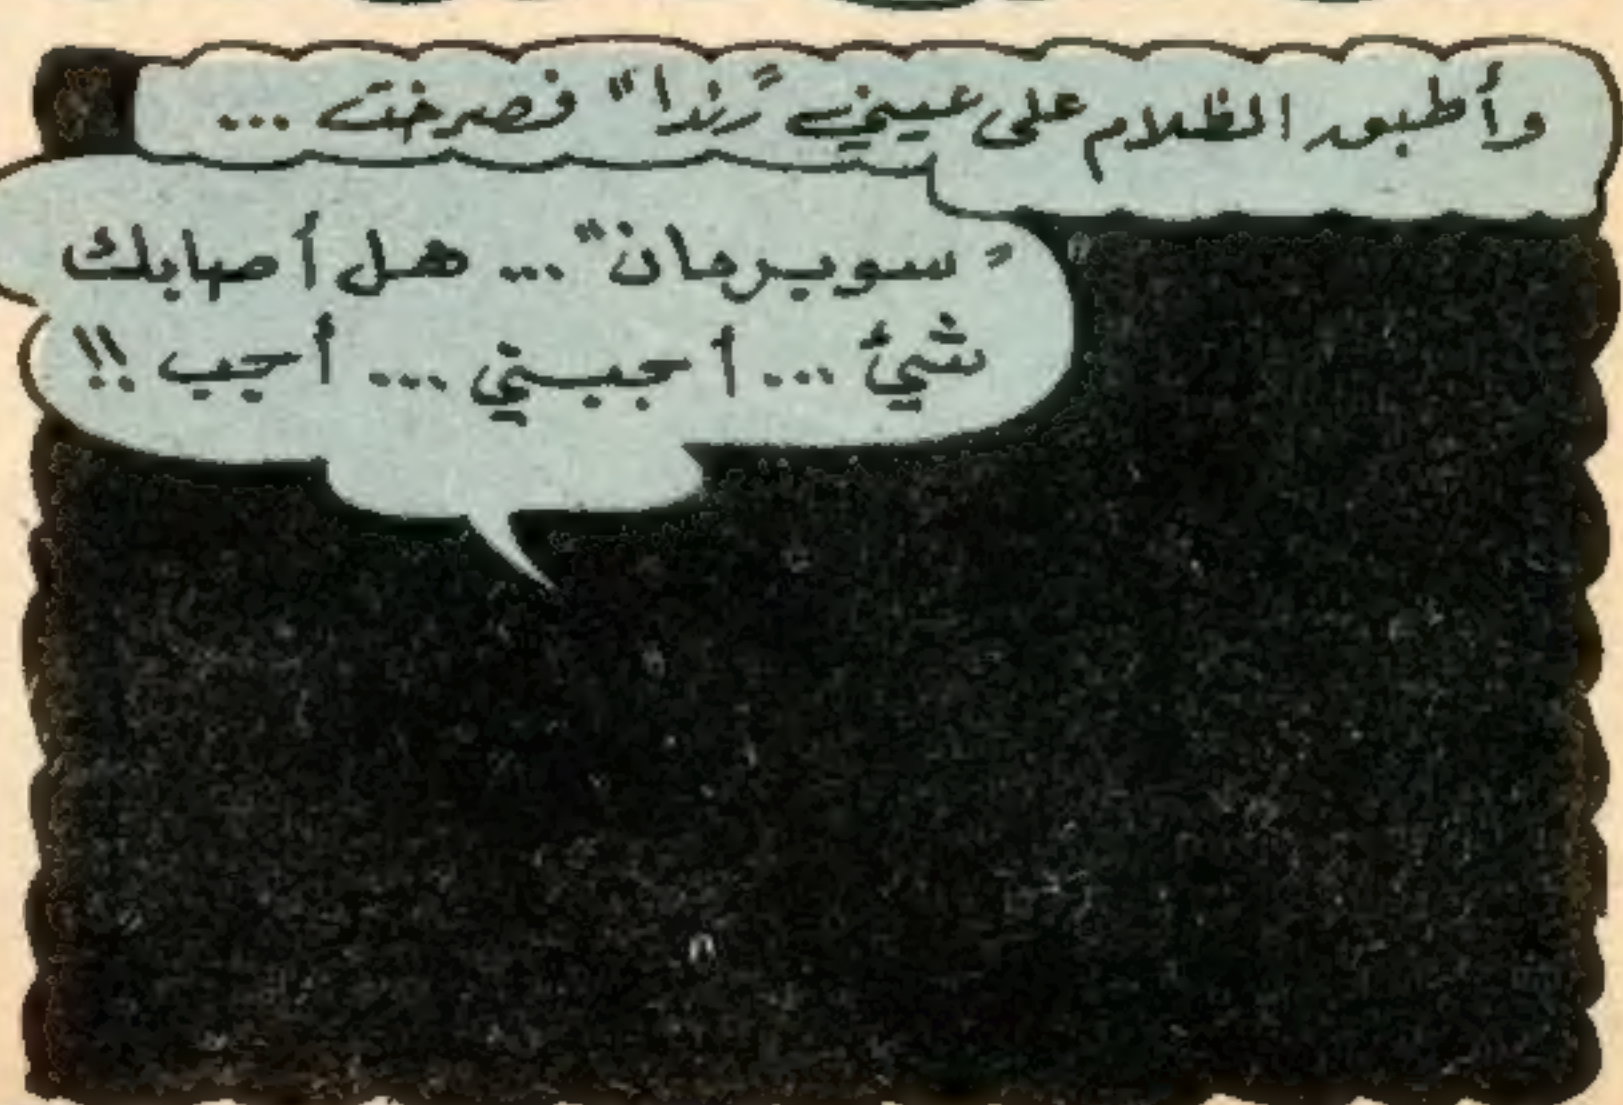 وأطبق الظلام على عيني "رندا" فصرخت ...
"سوبرمان" ... هل أصابك
شيئ ... أجبني ... أجب !!